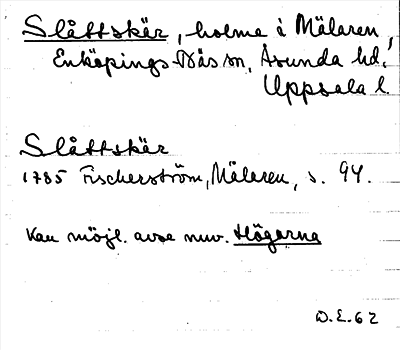 Slåttskär, holme i Mälaren,
Enköpings-Näs sn, Åsunda hd,
Uppsala l.
Slåttskär
1785 Fischerström, Mälaren, s. 94.
Kan möjl. avse nuv. Högarna
D.E.62